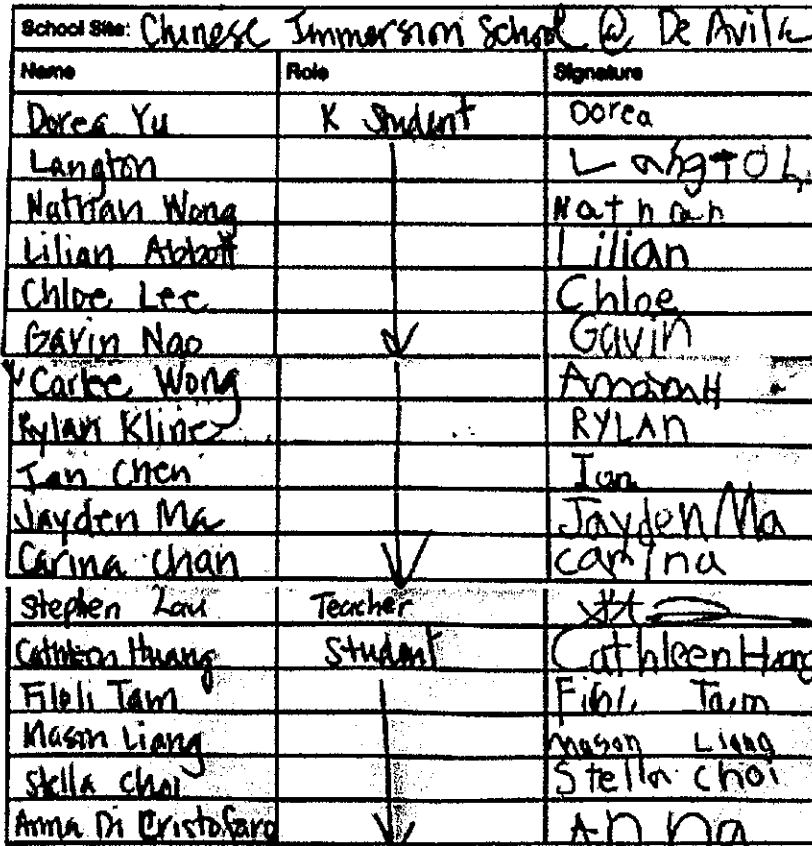 School Site: Chinese Immersion School @ De Avila
Name Role Signature
Dorea Yu K Student Dorea
Langton Langton
Nathan Wong Nathan
Lilian Abbott Lilian
Chloe Lee Chloe
Gavin Nao Gavin
Carlee Wong
Rylan Kline RYLAN
Ian Chen Ian
Jayden Ma Jayden Ma
Carina Chan carina
Stephen Lau Teacher
Cathleen Huang Student Cathleen Huang
Fileli Tam Tam
Mason Liang Mason Liang
Stella Choi Stella Choi
Anna Di Cristofaro Anna